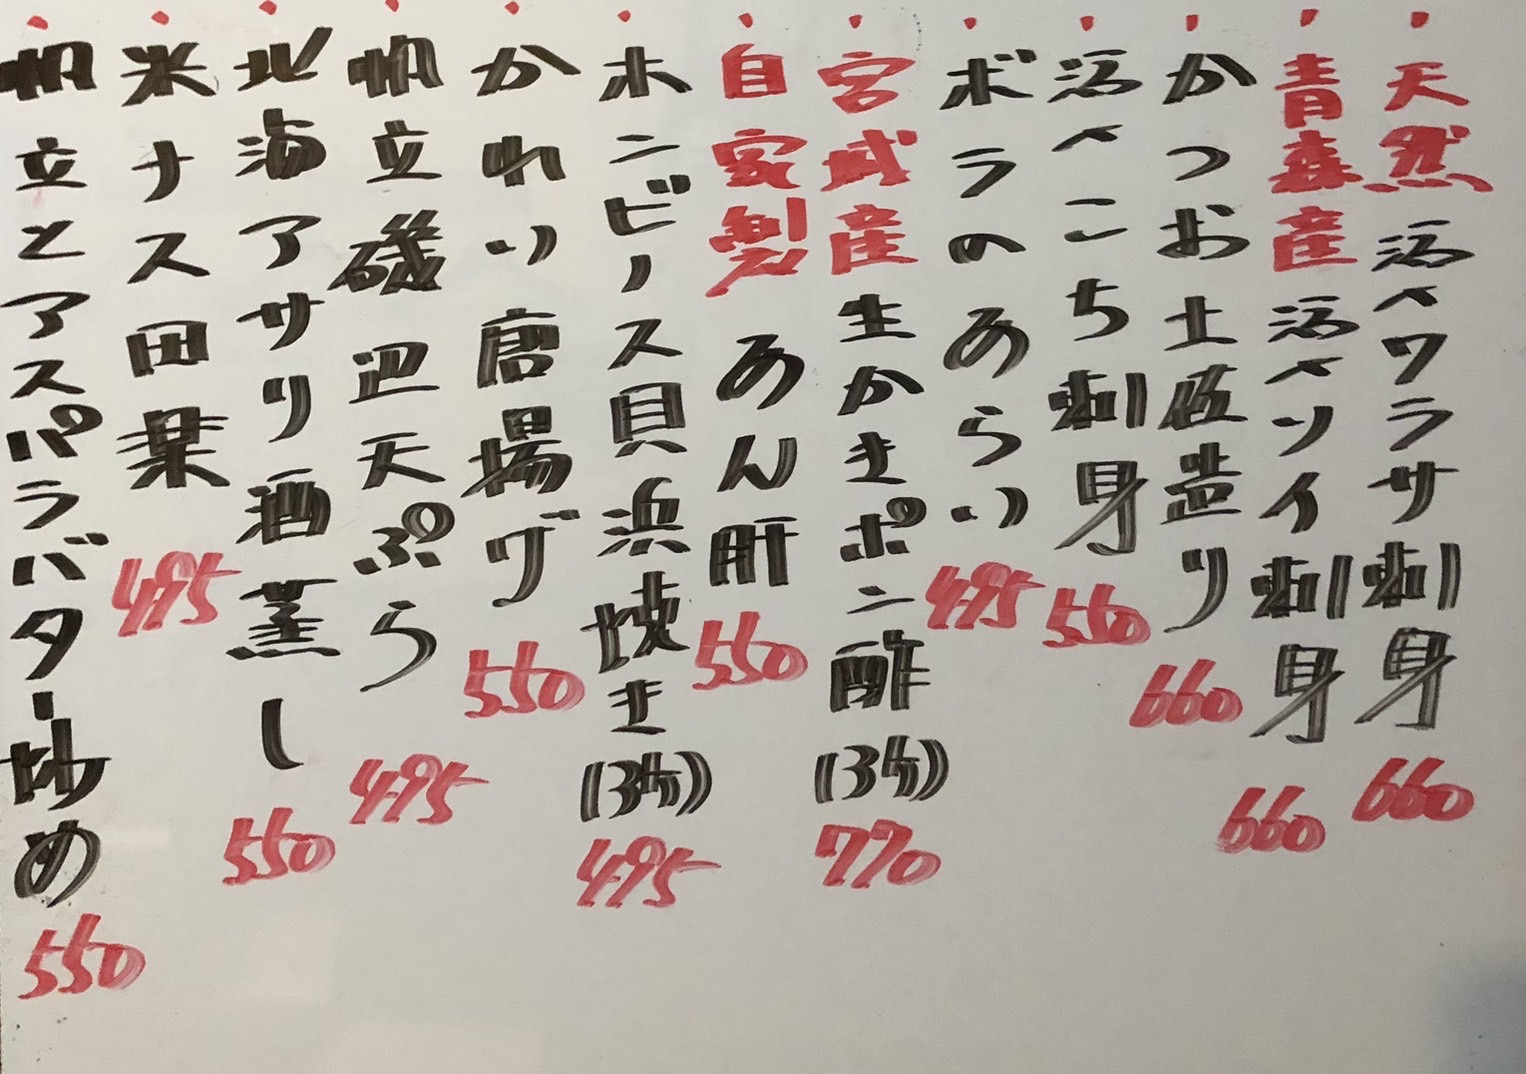 天然 活〆ワラサ刺身 660
青森産 活〆ソイ刺身 660
かつお土佐造り 660
活〆こち刺身 550
ボラのあらい 495
宮城産 生かきポン酢(3ケ) 770
自家製 あん肝 550
ホンビノス貝浜焼き(3ケ) 495
かれい唐揚げ 550
帆立磯辺天ぷら 495
北海アサリ酒蒸し 550
米ナス田楽 495
帆立とアスパラバター炒め 550